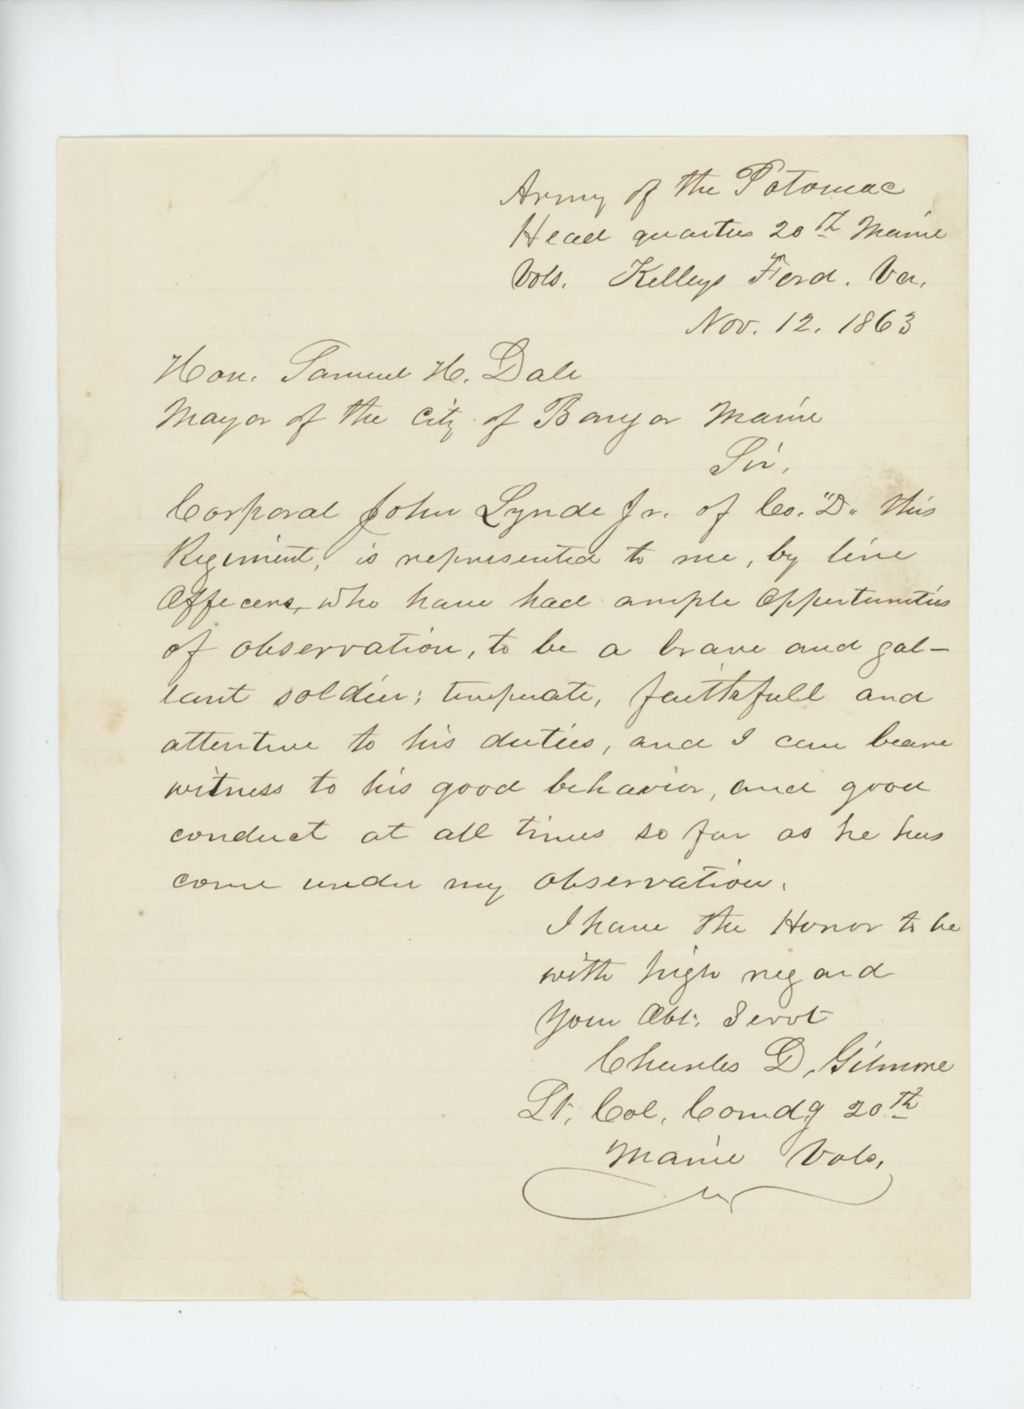 Army of the Potomac
Head quarters 20th Maine
Vols. Kelleys Ford. Va.
Nov. 12. 1863
Hon. Samuel H. Dale
Mayor of the City of Bangor Maine
Sir,
Corporal John Lynde Jr. of Co. "D" this
Regiment, is represented to me, by line
Officers, who have had ample Oppertunities
of observation, to be a brave and gal-
lant soldier; temperate, faithfull and
attentive to his duties, and I can beare
witness to his good behavior, and good
conduct at all times so far as he has
come under my Observation.
I have the Honor to be
with high regard
Your Obt. Servt
Charles D. Gilmore
Lt. Col. Comdg 20th
Maine Vols.